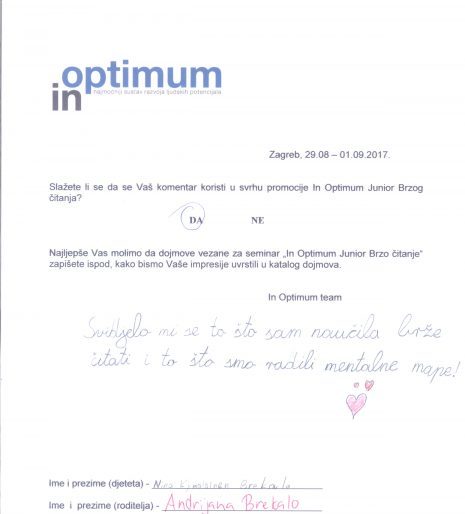 in optimum
najmoćniji sustav razvoja ljudskih potencijala
Zagreb, 29.08 – 01.09.2017.
Slažete li se da se Vaš komentar koristi u svrhu promocije In Optimum Junior Brzog
čitanja?
DA NE
Najljepše Vas molimo da dojmove vezane za seminar „In Optimum Junior Brzo čitanje“
zapišete ispod, kako bismo Vaše impresije uvrstili u katalog dojmova.
In Optimum team
Svidjelo mi se to što sam naučila brže
čitati i to što smo radili mentalne mape!
Ime i prezime (djeteta) - Brekalo
Ime i prezime (roditelja) - Andrijana Brekalo